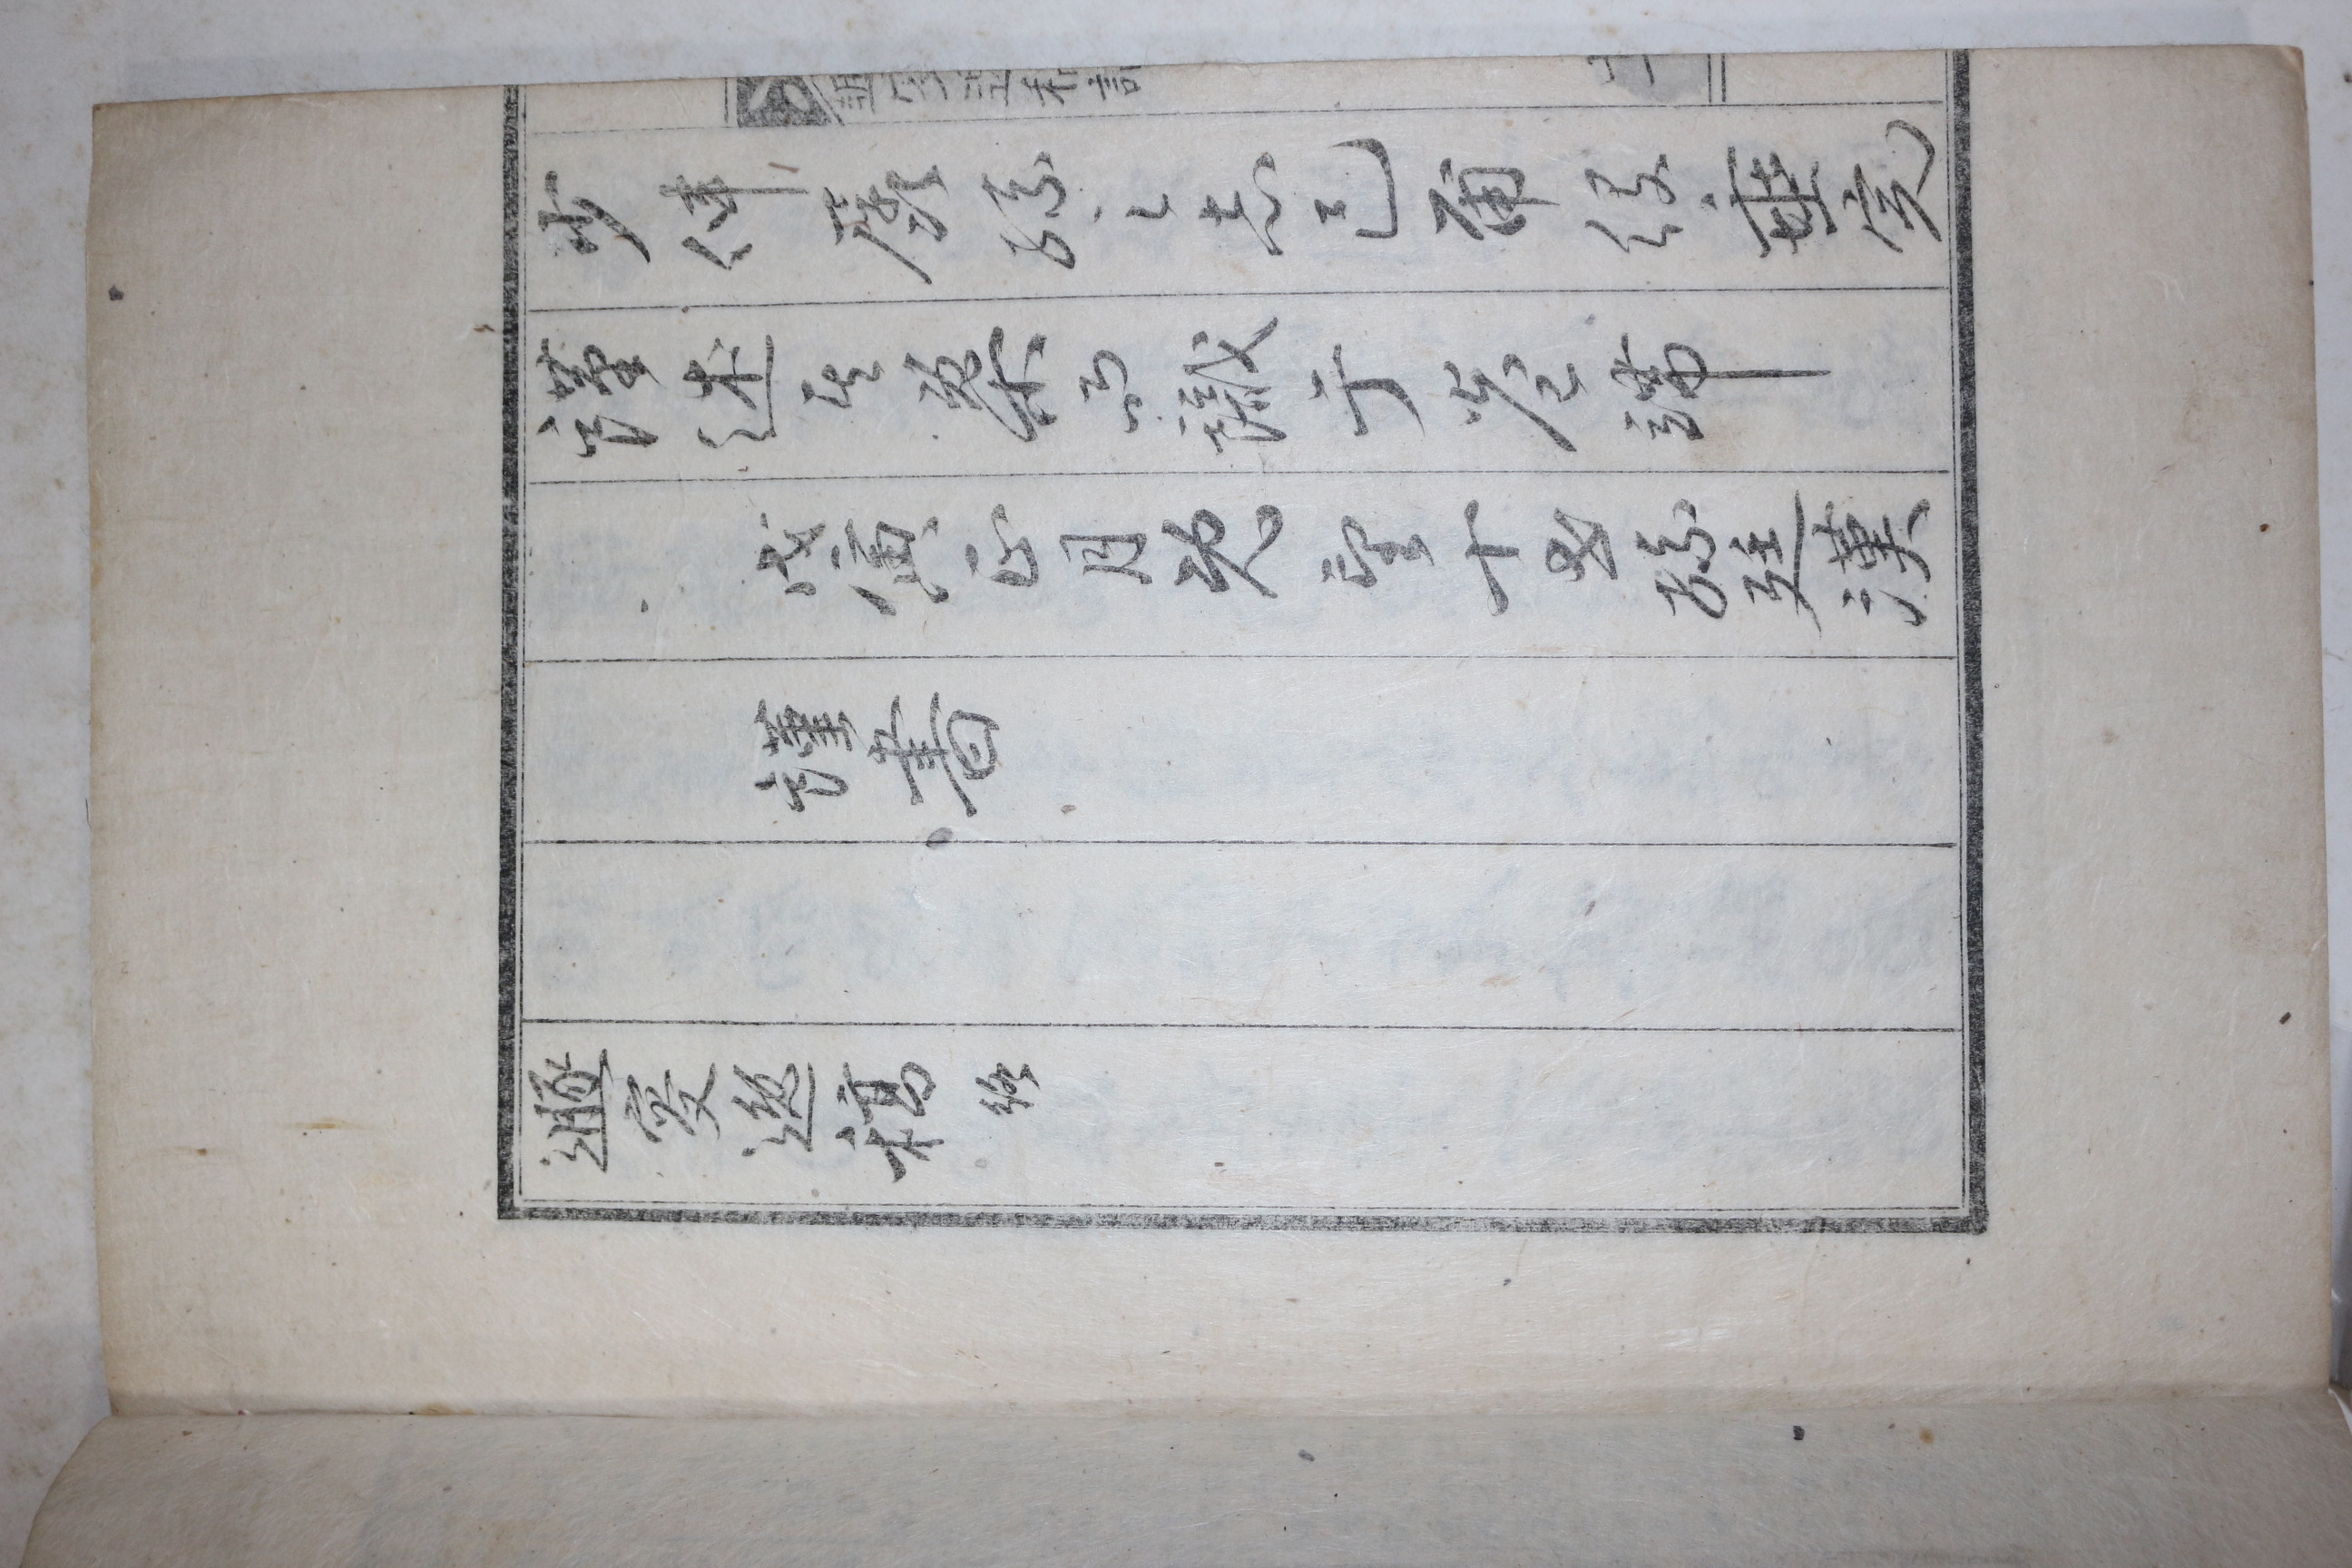 少伸孱孫之志已爾役垂完
謹述其槩而識于卷端
戊寅正月旣望十世孫廷漢
謹書
遯窔逸稿 終